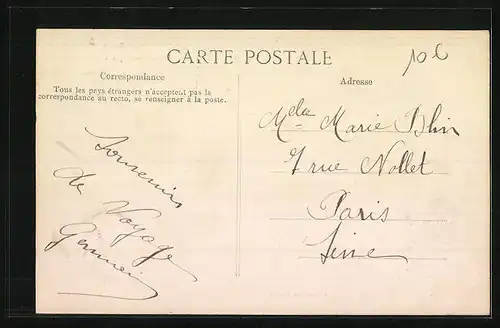 CARTE POSTALE
Correspondance
Tous les pays étrangers n'acceptent pas la
correspondance au recto, se renseigner à la poste.
Souvenir
de Voyage
Germain
Adresse
Melle Marie Blin
7 rue Nollet
Paris
Seine